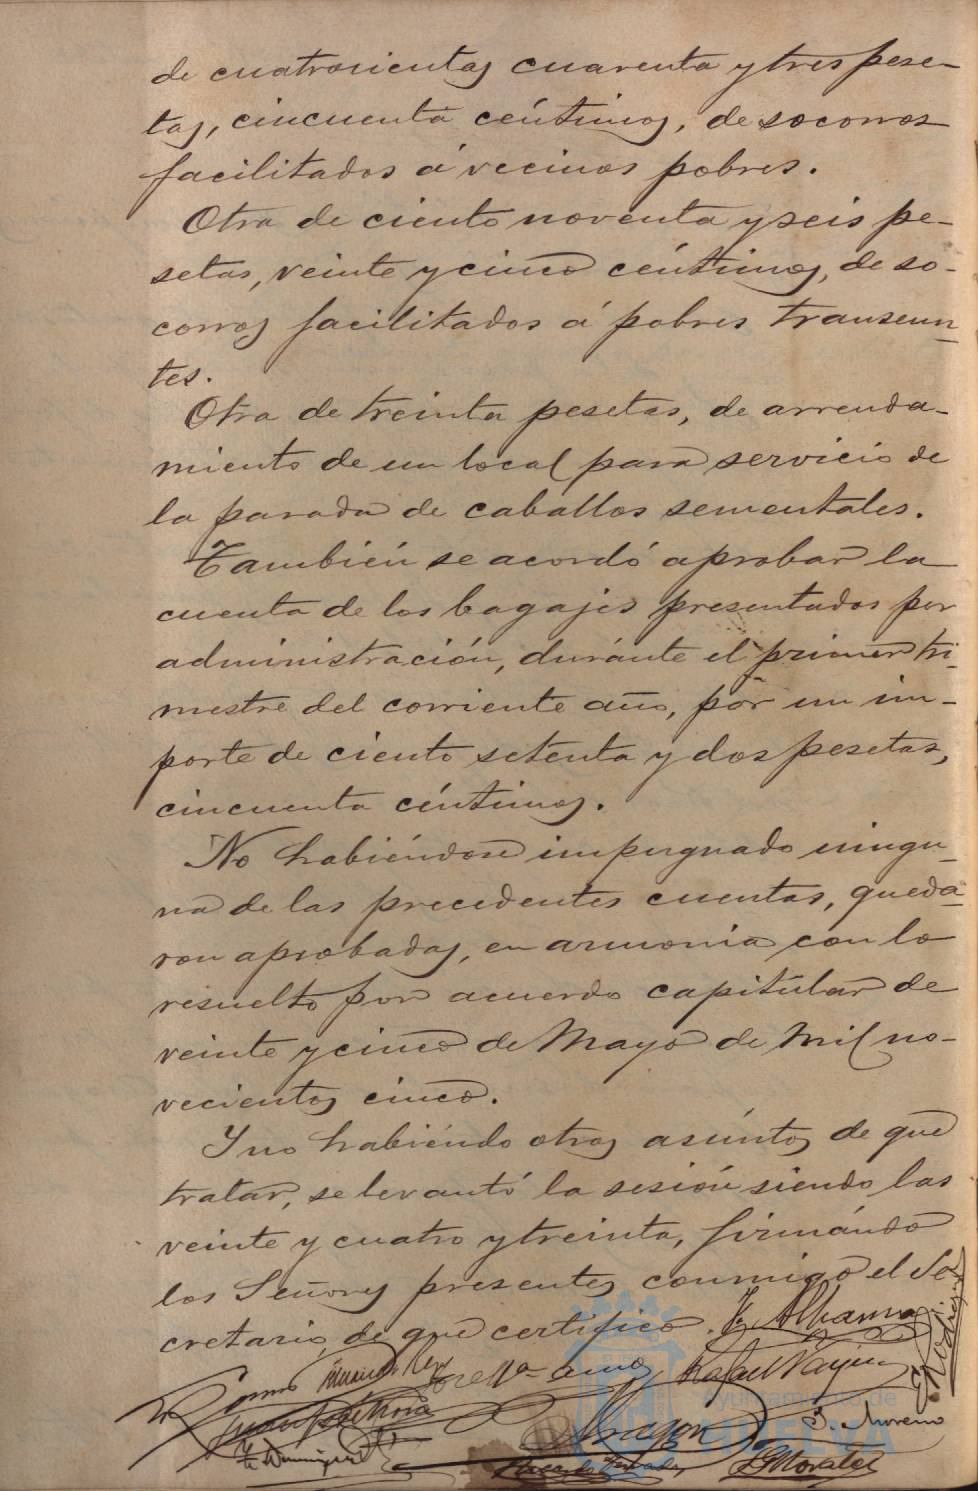 de cuatrocientas cuarenta y tres pese-
tas, cincuenta céntimos, de socorros
facilitados á vecinos pobres.
Otra de ciento noventa y seis pe-
setas, veinte y cinco céntimos, de so-
corros facilitados á pobres transeun-
tes.
Otra de treinta pesetas, de arrenda-
miento de un local para servicio de
la parada de caballos sementales.
También se acordó aprobar la
cuenta de los bagajes presentados por
administración, durante el primer tri-
mestre del corriente año, por un im-
porte de ciento setenta y dos pesetas,
cincuenta céntimos.
No habiéndose impugnado ningu-
na de las precedentes cuentas, queda-
ron aprobadas, en armonia con lo
resuelto por acuerdo capitular de
veinte y cinco de Mayo de mil no-
vecientos cinco.
Y no habiéndo otros asúntos de que
tratar, se levantó la sesión siendo las
veinte y cuatro y treinta, firmándo
los Señores presentes conmigo el Se-
cretario, de que certifico.
Rafael
Aragon
J. Moreno
Morales
Ayuntamiento de
HUELVA